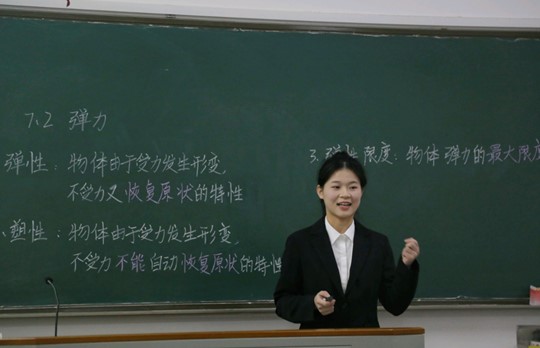 7.2 弹力
弹性：物体由于受力发生形变，
不受力又恢复原状的特性
塑性：物体由于受力发生形变，
不受力不能自动恢复原状的特性
3. 弹性限度：物体弹力的最大限度